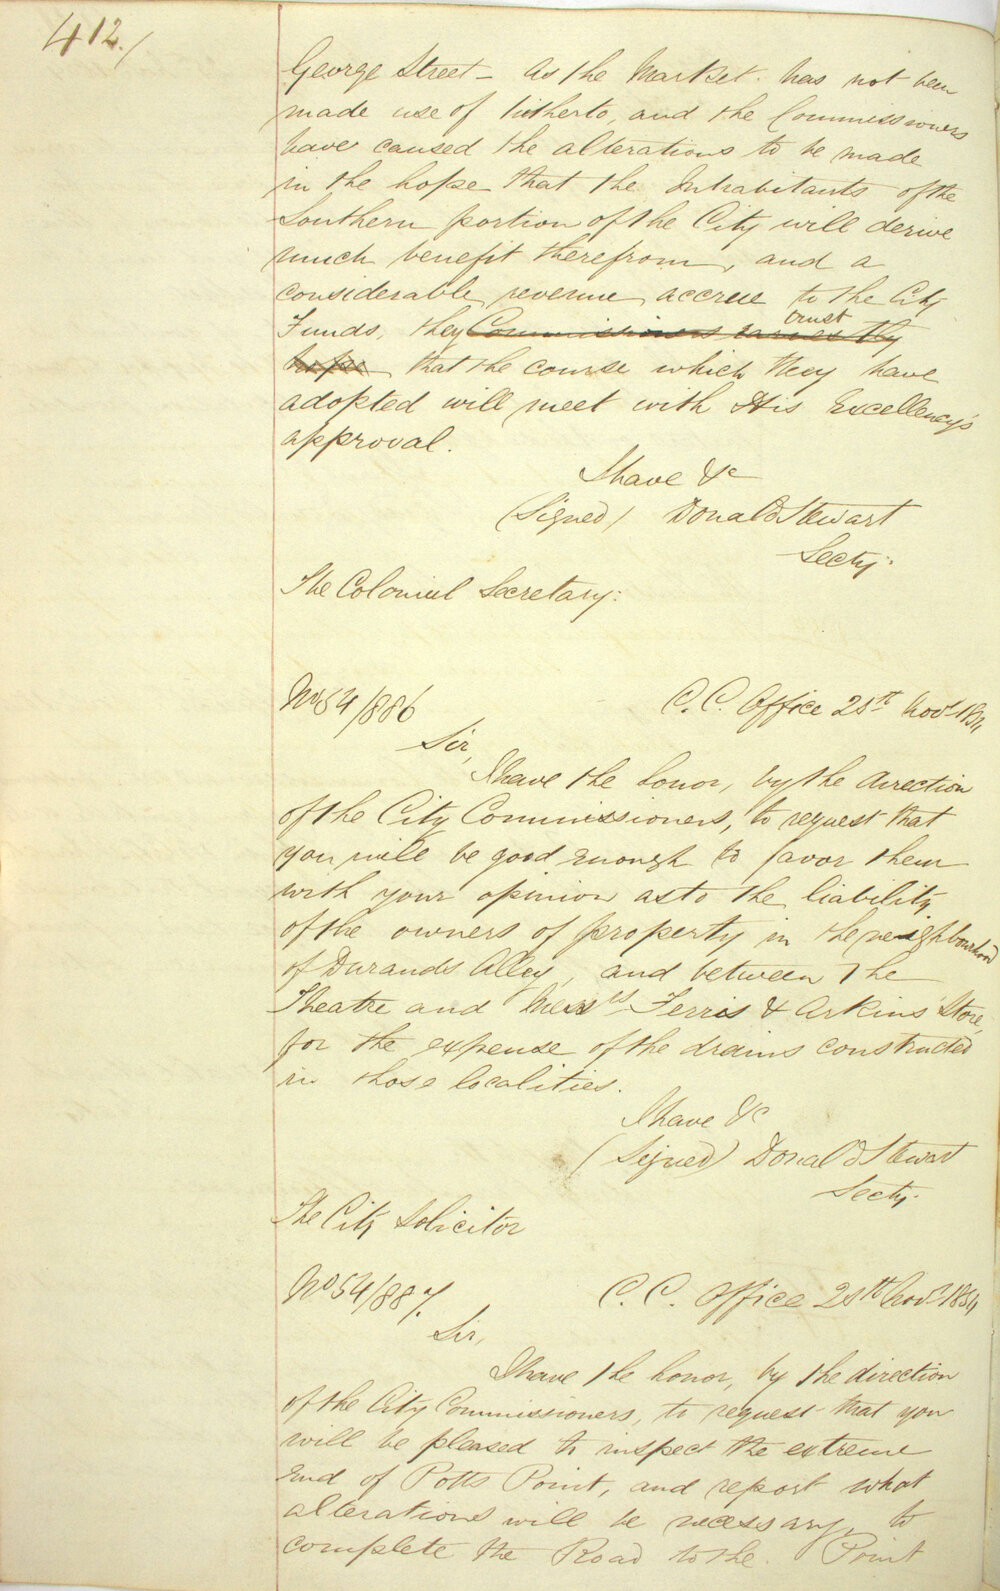 412./
George Street - As the Market has not been
made use of hitherto, and the Commissioners
have caused the alterations to be made
in the hope that the Inhabitants of the
Southern portion of the City will derive
much benefit therefrom, and a
considerable revenue accrue to the City
trust
Funds, they Commissioners earnestly
hope that the course which they have
adopted will meet with His Excellency's
approval.
I have &c
(Signed) Donald Stewart
Secty.
The Colonial Secretary.
No 54/886
C. C. Office 25th Novr 1854
Sir,
I have the honor, by the direction
of the City Commissioners, to request that
you will be good enough to favor them
with your opinion as to the liability
of the owners of property in the neighbourhood
of Durands Alley, and between the
Theatre and Messrs Ferris & Arkins Store,
for the expense of the drains constructed
in those localities.
I have &c
(Signed) Donald Stewart
Secty.
The City Solicitor
No 54/887.
C. C. Office 25th Novr 1854
Sir,
I have the honor, by the direction
of the City Commissioners, to request that you
will be pleased to inspect the extreme
End of Potts Point, and report what
alterations will be necessary, to
complete the Road to the Point